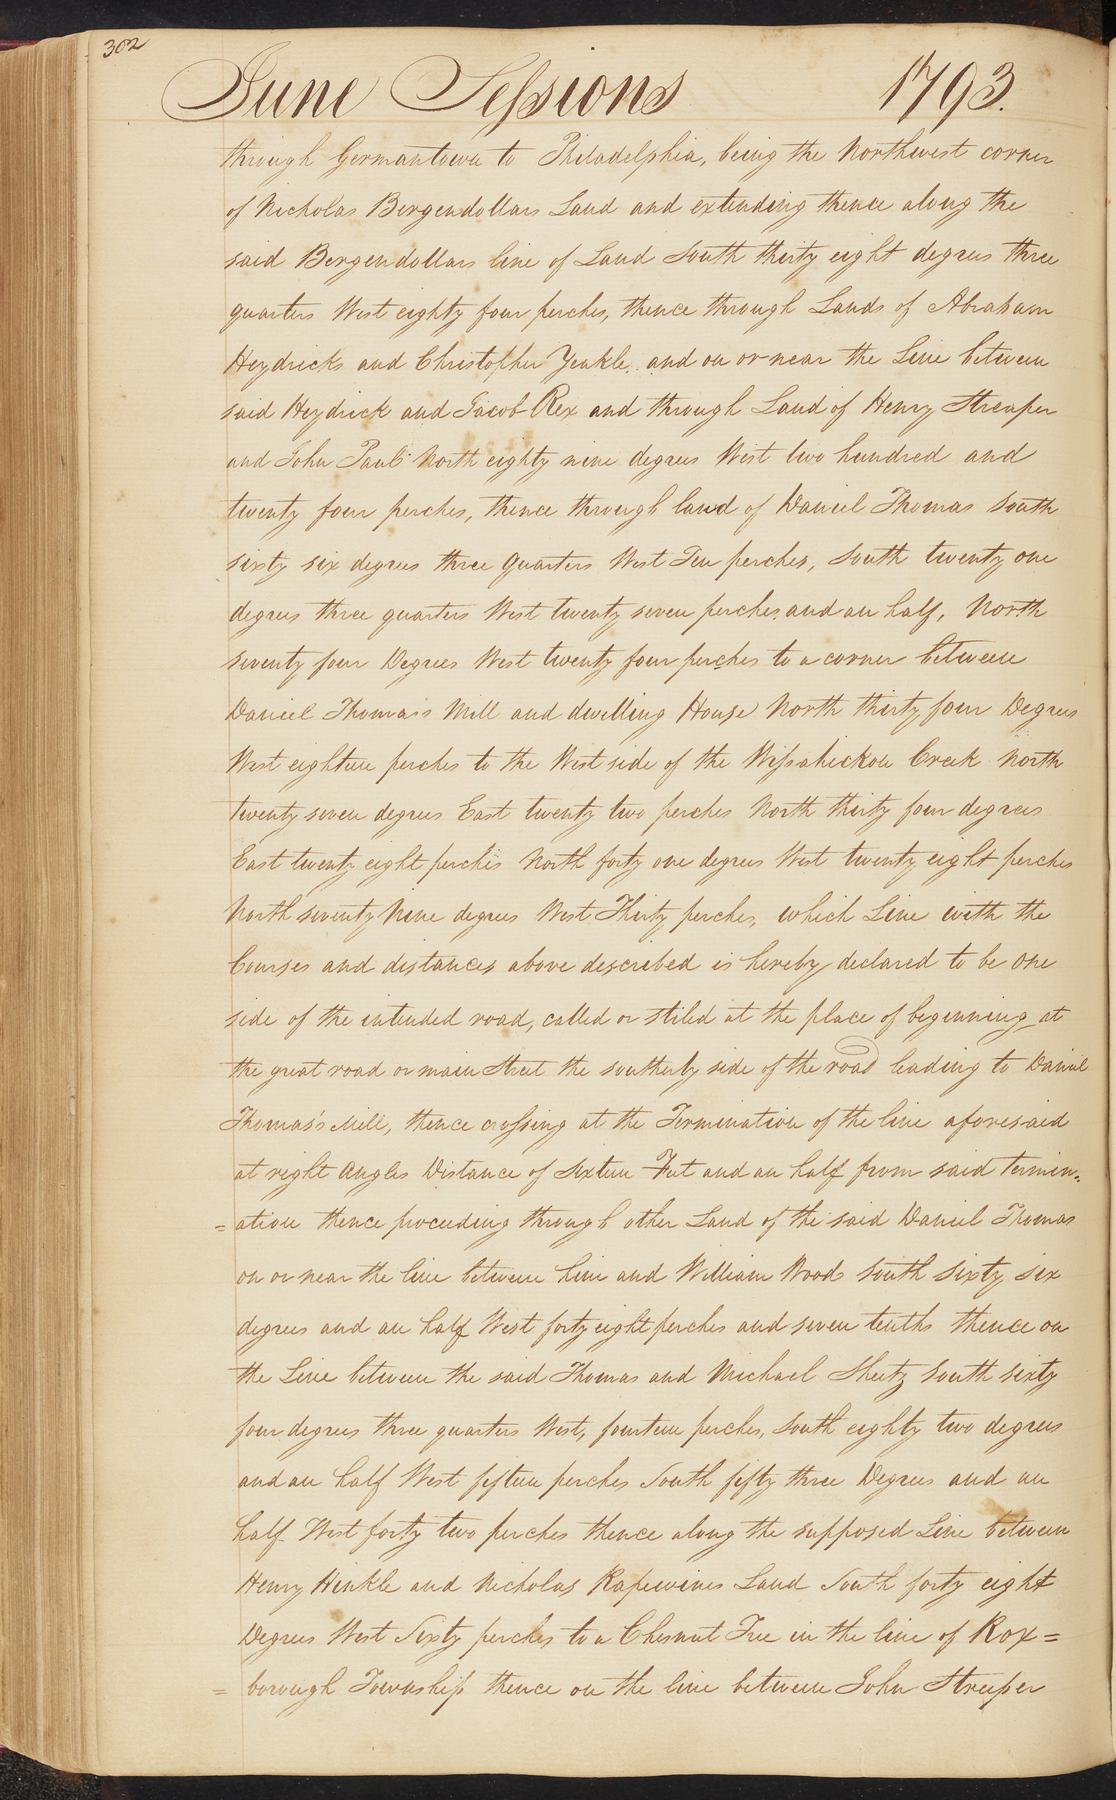 302
June Sessions 1793.
through Germantown to Philadelphia, being the Northwest corner
of Nicholas Bergendollars Land and extending thence along the
said Bergendollars line of Land South thirty eight degrees three
quarters West eighty four perches, thence through Lands of Abraham
Heydricks and Christopher Yeakle and on or near the Line between
said Heydrick and Jacob Rex and through Land of Henry Streaper
and John Paul North eighty nine degrees West two hundred and
twenty four perches, thence through land of Daniel Thomas South
sixty six degrees three quarters West Ten perches, South twenty one
degrees three quarters West twenty seven perches and an half, North
seventy four Degrees West twenty four perches to a corner between
Daniel Thomas's Mill and dwelling House North thirty four Degrees
West eighteen perches to the West side of the Wissahickon Creek North
twenty seven degrees East twenty two perches North thirty four degrees
East twenty eight perches North forty one degrees West twenty eight perches
North seventy Nine degrees West Thirty perches, which Line with the
Courses and distances above described is hereby declared to be one
side of the intended road, called or stiled at the place of beginning at
the great road or main Street the southerly side of the road leading to Daniel
Thomas's Mill, thence crossing at the Termination of the line aforesaid
at right Angles Distance of Sixteen Feet and an half from said termin=
=ation thence proceeding through other Land of the said Daniel Thomas
on or near the line between him and William Woods South Sixty six
degrees and an half West forty eight perches and seven tenths thence on
the Line between the said Thomas and Michael Sheetz South sixty
four degrees three quarters West, fourteen perches, South eighty two degrees
and an half West fifteen perches South fifty three Degrees and an
half West forty two perches thence along the supposed Line between
Henry Hinkle and Nicholas Rapewines Land South forty eight
Degrees West Sixty perches to a Chesnut Tree in the line of Rox=
= borough Township thence on the line between John Streeper